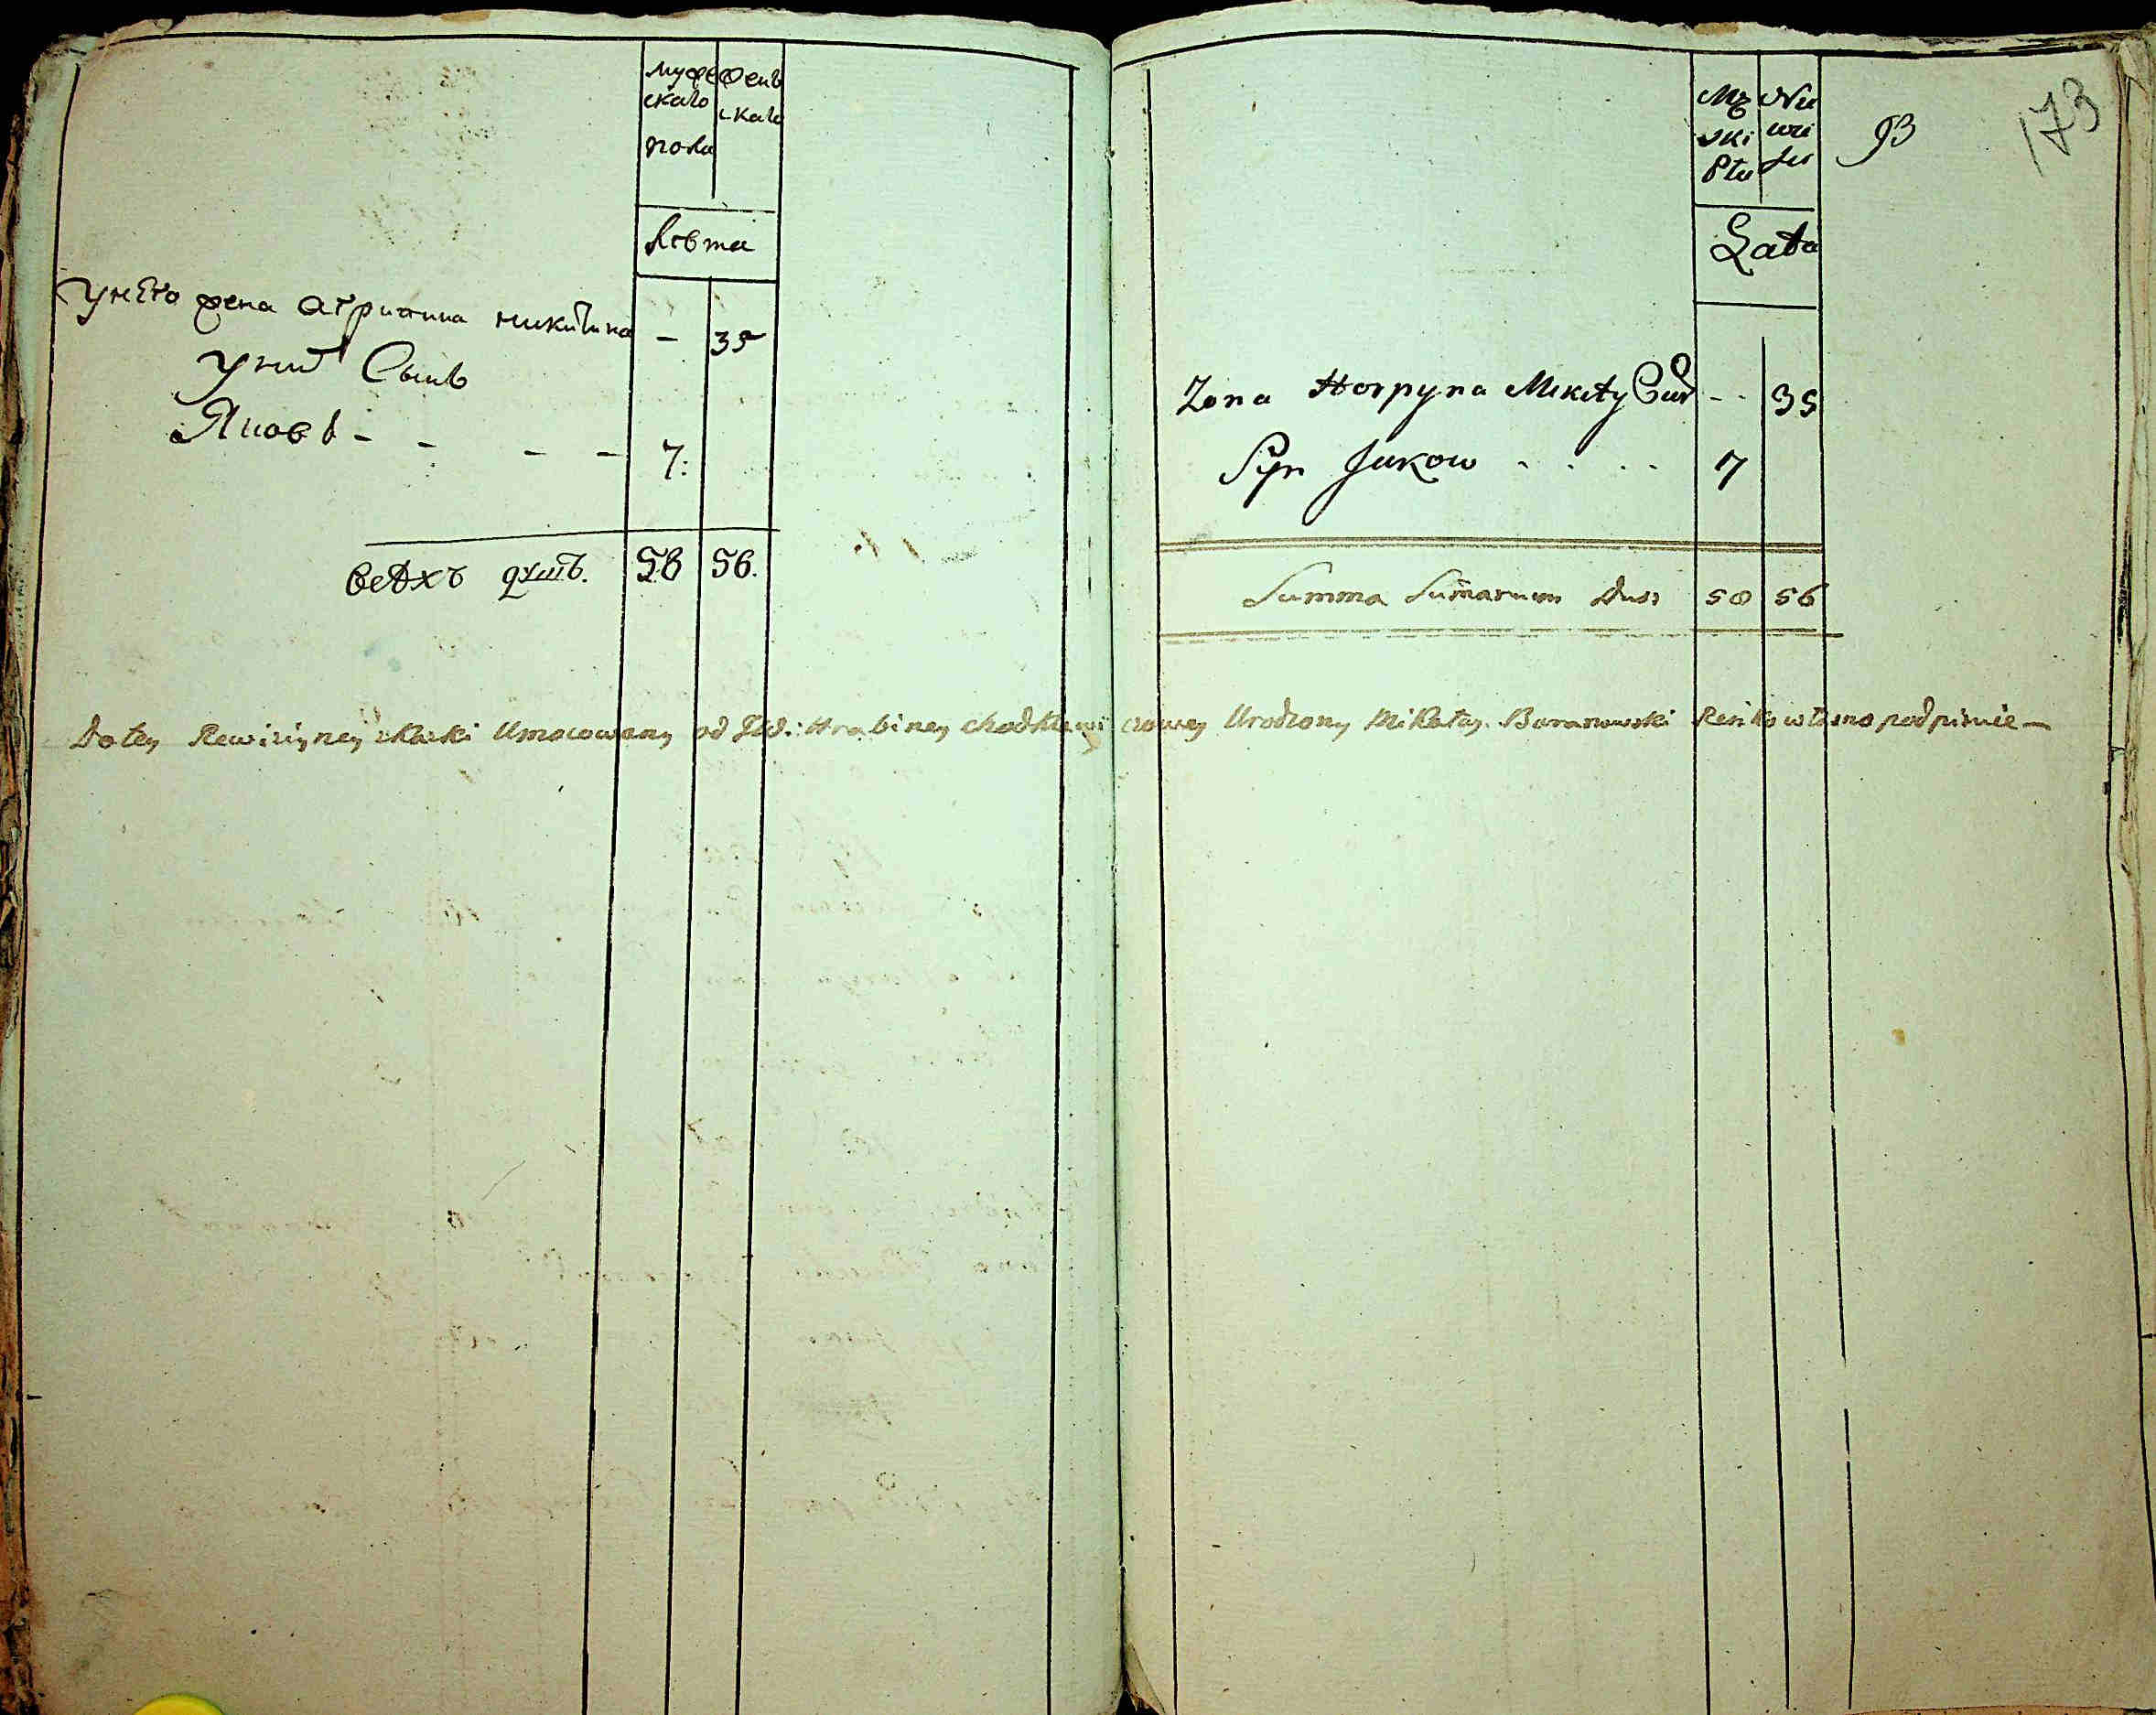 муже
скаго
пола
женъ
скаго
Лѣта
у него жена Агрипина никитина - 35
у них Сынъ
Яковъ - - - - 7:
всѣхъ душъ. 58 56.
93
173
Mę
ski
Płu
Nie
wie
Lata
Zona Horpyna Mikity Cur -- 35
Syn Jakow . . . . 7
Summa Sumarum Dusz 58 56
Do tey Rewizyiney skaski Umocowany od JW: Hrabiney Chodkiewiczowey Urodzony Mikołay Baranowski Ręiko własno podpisuie —